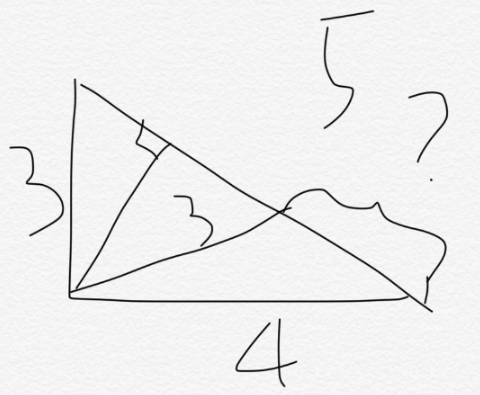 5
?
3
3
4